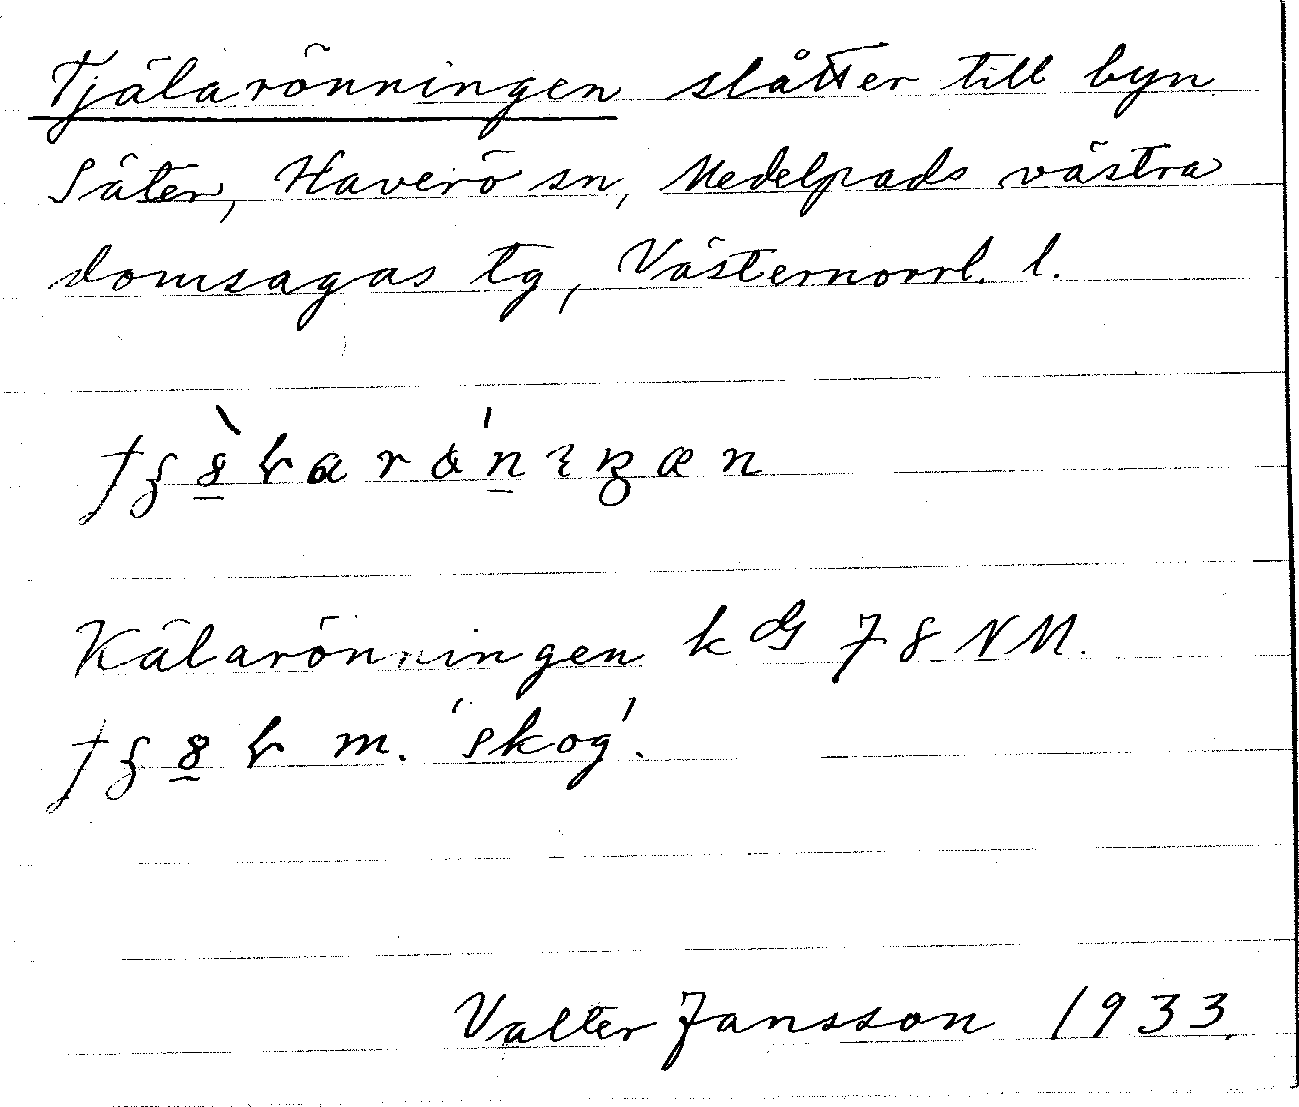 Tjälarönningen slåtter till byn
Säter, Haverö sn, Medelpads västra
domsagas tg, Västernorrl. l.
Kälarönningen k 78 NM.
m. 'skog'.
Valter Jansson 1933.